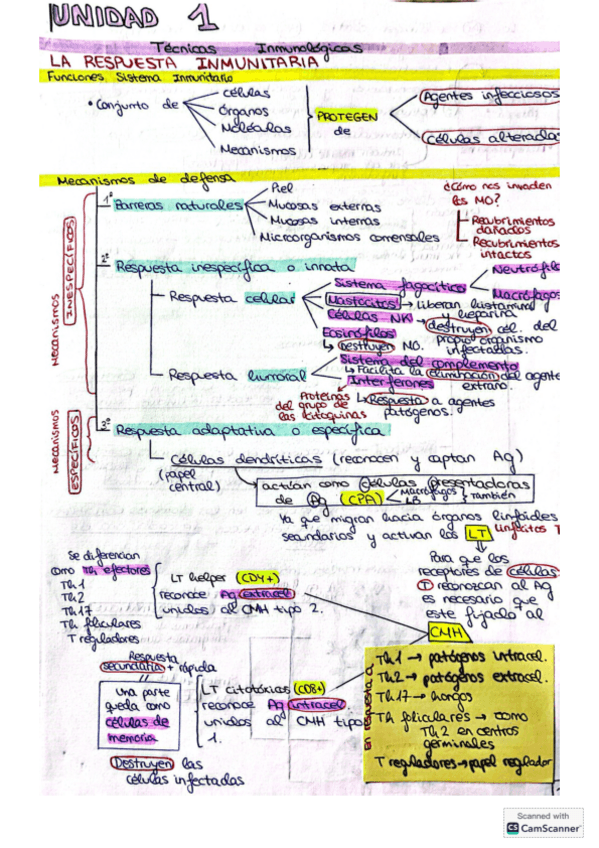 UNIDAD 1
Técnicas Inmunológicas
LA RESPUESTA INMUNITARIA
Funciones Sistema Inmunitario
• Conjunto de
células
Órganos
Moléculas
Mecanismos
PROTEGEN
de
Agentes infecciosos
Células alterada
Mecanismos de defensa
Mecanismos
INESPECÍFICOS
1º Barreras naturales
Piel
Mucosas externas
Mucosas internas
Microorganismos comensales
¿Cómo nos invaden
los MO?
Recubrimientos
dañados
Recubrimientos
intactos
2º Respuesta inespecífica o innata
Respuesta celular
Sistema fagocítico
Neutrófilo
Macrófagos
Mastocitos → liberan histamina
y heparina
Células NK → destruyen cél. del
propio organismo
infectadas.
Eosinófilos
↳ Destruyen MO.
Respuesta humoral
Sistema del complemento
↳ Facilita la eliminación del agente
extraño.
Interferones
Proteínas
del grupo de
las citoquinas
↳ Respuesta a agentes
patógenos.
Mecanismos
ESPECÍFICOS
3º Respuesta adaptativa o específica
Células dendríticas (reconocen y captan Ag)
(papel
central)
actúan como Células Presentadoras
de Ag (CPA)
Macrófagos
LB
También
Ya que migran hacia órganos linfoides
secundarios y activan los LT
Linfocitos T
Para que los
receptores de células
T reconozcan al Ag
es necesario que
este fijado al
CMH
Se diferencian
como Th efectores
Th 1
Th 2
Th 17
Th foliculares
T reguladores
LT helper (CD4+)
reconoce Ag extracel.
unidos al CMH tipo 2.
Respuesta
secundaria + rápida
Una parte
queda como
células de
memoria
LT citotóxicos (CD8+)
reconoce Ag intracel.
unidos al CMH tipo
1.
Destruyen las
células infectadas
en respuesta a
Th1 → patógenos intracel.
Th2 → patógenos extracel.
Th17 → hongos
Th foliculares → como
Th 2 en centros
germinales
T reguladores → papel regulador
Scanned with
CS CamScanner